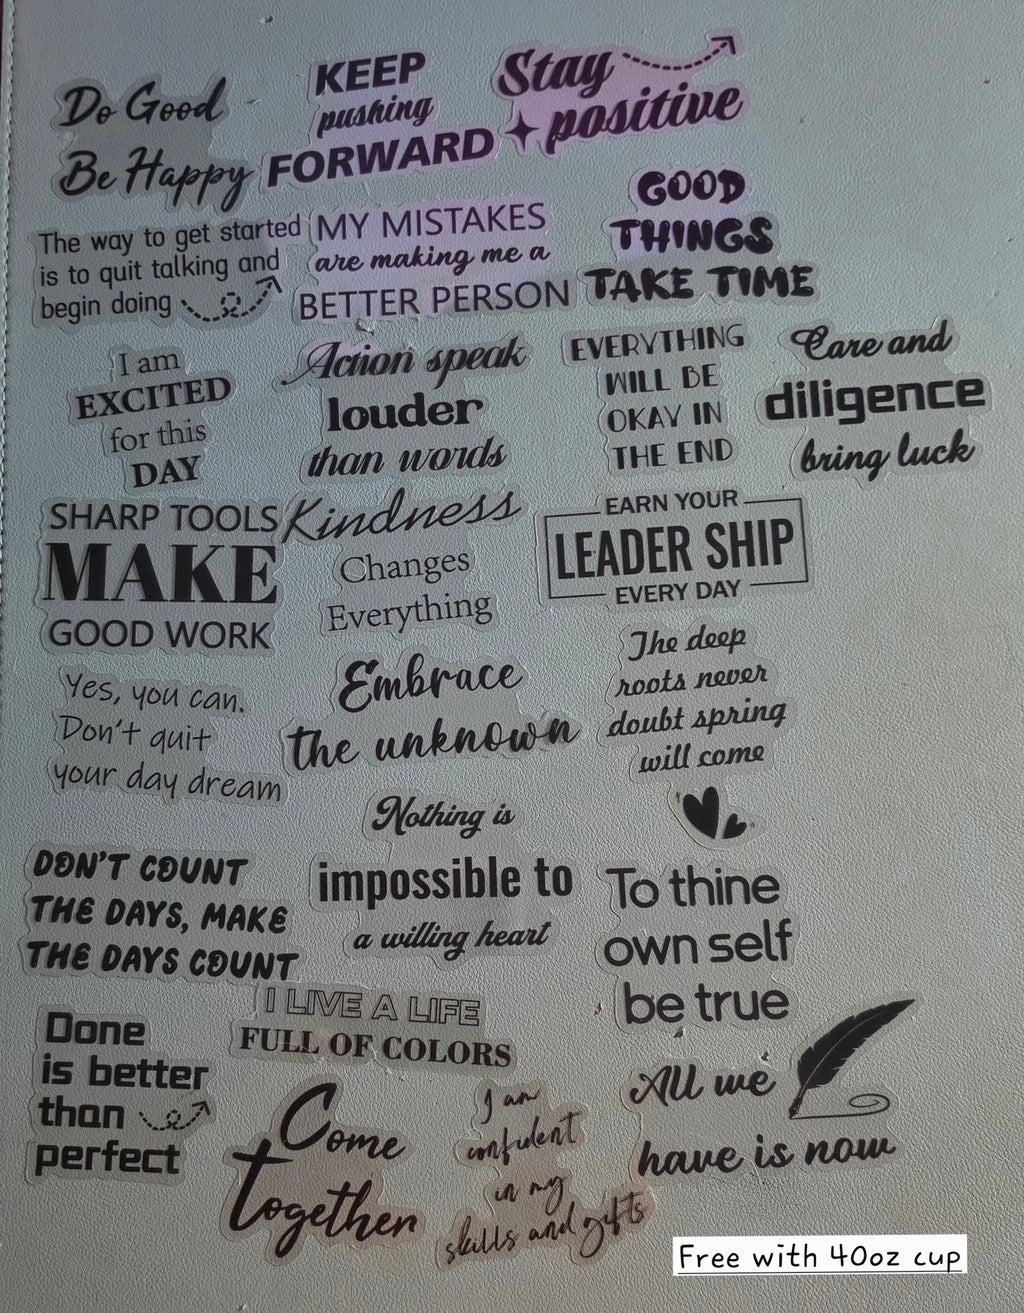 Do Good
Be Happy
KEEP
pushing
FORWARD
Stay
positive
The way to get started
is to quit talking and
begin doing
MY MISTAKES
are making me a
BETTER PERSON
GOOD
THINGS
TAKE TIME
I am
EXCITED
for this
DAY
Action speak
louder
than words
EVERYTHING
WILL BE
OKAY IN
THE END
Care and
diligence
bring luck
SHARP TOOLS
MAKE
GOOD WORK
Kindness
Changes
Everything
EARN YOUR
LEADER SHIP
EVERY DAY
Yes, you can.
Don't quit
your day dream
Embrace
the unknown
The deep
roots never
doubt spring
will come
DON'T COUNT
THE DAYS, MAKE
THE DAYS COUNT
Nothing is
impossible to
a willing heart
To thine
own self
be true
Done
is better
than
perfect
I LIVE A LIFE
FULL OF COLORS
Come
together
I am
confident
in my
skills and gifts
All we
have is now
Free with 40oz cup